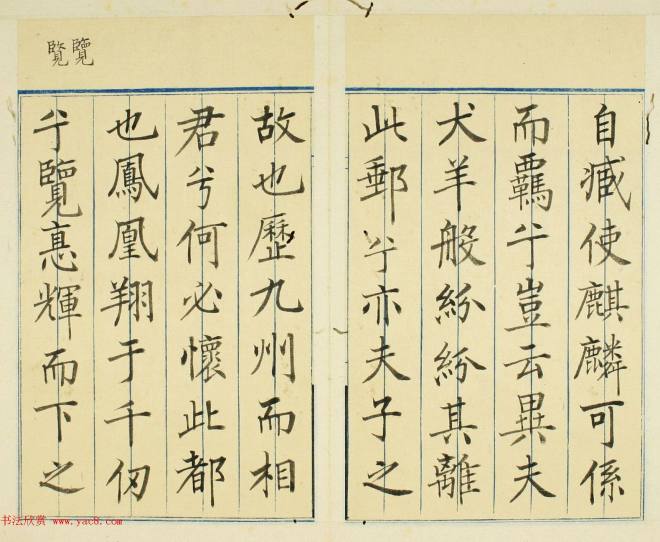 自臧使麒麟可係
而羈兮豈云異夫
犬羊般紛紛其離
此郵兮亦夫子之
故也歷九州而相
君兮何必懷此都
也鳳凰翔于千仞
兮覽悳輝而下之
覽覽
书法欣赏 www.yac8.com